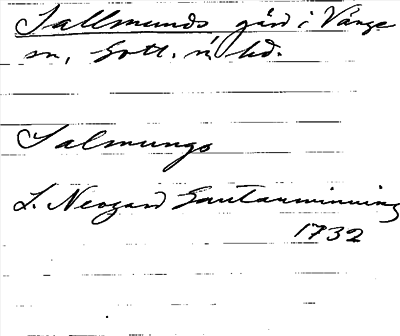 Sallmunds gård i Vänge
sn, Gotl. n. hd.
Salmungs
L. Neogard Gautauminning
1732